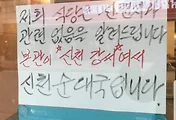 저희 식당은
관련 없음을 알려드립니다
본관이 신천 강씨 여서
신천순대국입니다